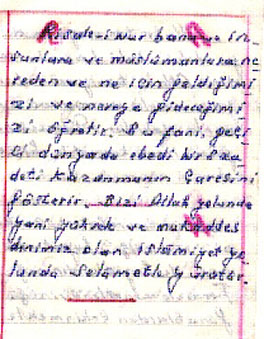 Risale-i nur bana ve in-
sanlara ve müslümanlara ne
reden ve ne için geldiğimi
zi ve nereye gideceğimi
zi öğretir. Bu fani, geçi
ci dünyada ebedi bir saa
deti kazanmanın çaresini
gösterir. Bizi Allah yolunda
yani yüksek ve mukaddes
dinimiz olan islâmiyet yo
lunda selâmetle yürütür.